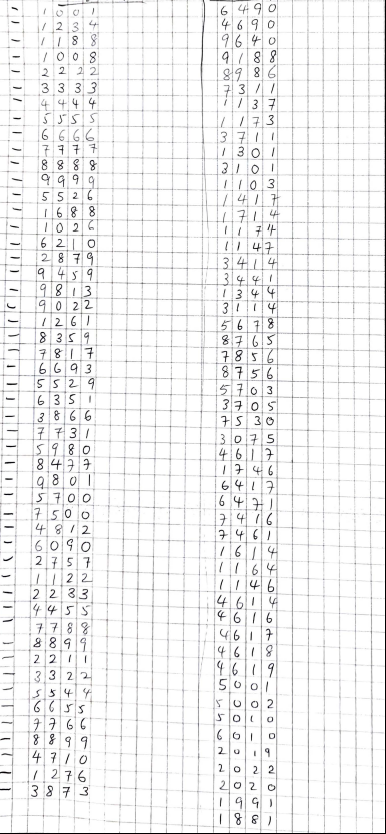 1001
1234
1188
1008
2222
3333
4444
5555
6666
7777
8888
9999
5526
1688
1026
6210
2879
9459
9813
9022
1261
8359
7817
6693
5529
6351
3866
7731
5980
8477
9801
5700
7500
4812
6090
2757
1122
2233
4455
7788
8899
2211
3322
5544
6655
7766
8899
4710
1276
3873
6490
4690
9640
9188
8986
7311
1137
1173
3711
1301
3101
1103
1417
1714
1174
1147
3414
3441
1344
3114
5678
8765
7856
8756
5703
3705
7530
3075
4617
1746
6417
6471
7416
7461
1614
1164
1146
4614
4616
4617
4618
4619
5001
5002
5010
6010
2019
2022
2020
1991
1881